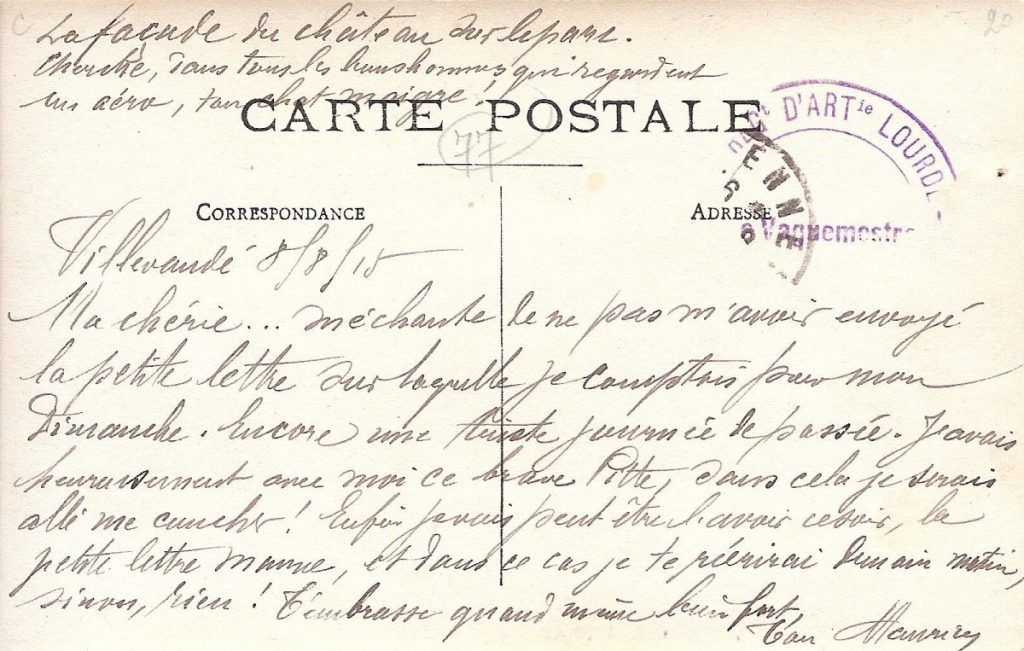 La façade du château sur le parc.
Cherche, dans tous les bonshommes qui regardent
un aéro, ton chat maigre !
20
CARTE POSTALE
77
D'ARTie LOURDE
Vaguemestre
CORRESPONDANCE
ADRESSE
Villevaudé 8/8/15
Ma chérie... méchante de ne pas m'avoir envoyé
la petite lettre sur laquelle je comptais pour mon
Dimanche. Encore une triste journée de passée. J'avais
heureusement avec moi ce brave Pitte, sans cela je serais
allé me coucher ! Enfin je vais peut être l'avoir ce soir, la
petite lettre, et dans ce cas je te réécrirai demain matin,
sinon, rien ! T'embrasse quand même bien fort.
Ton Maurice